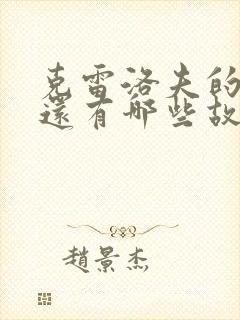 克雷洛夫的
還有哪些故
趙景杰